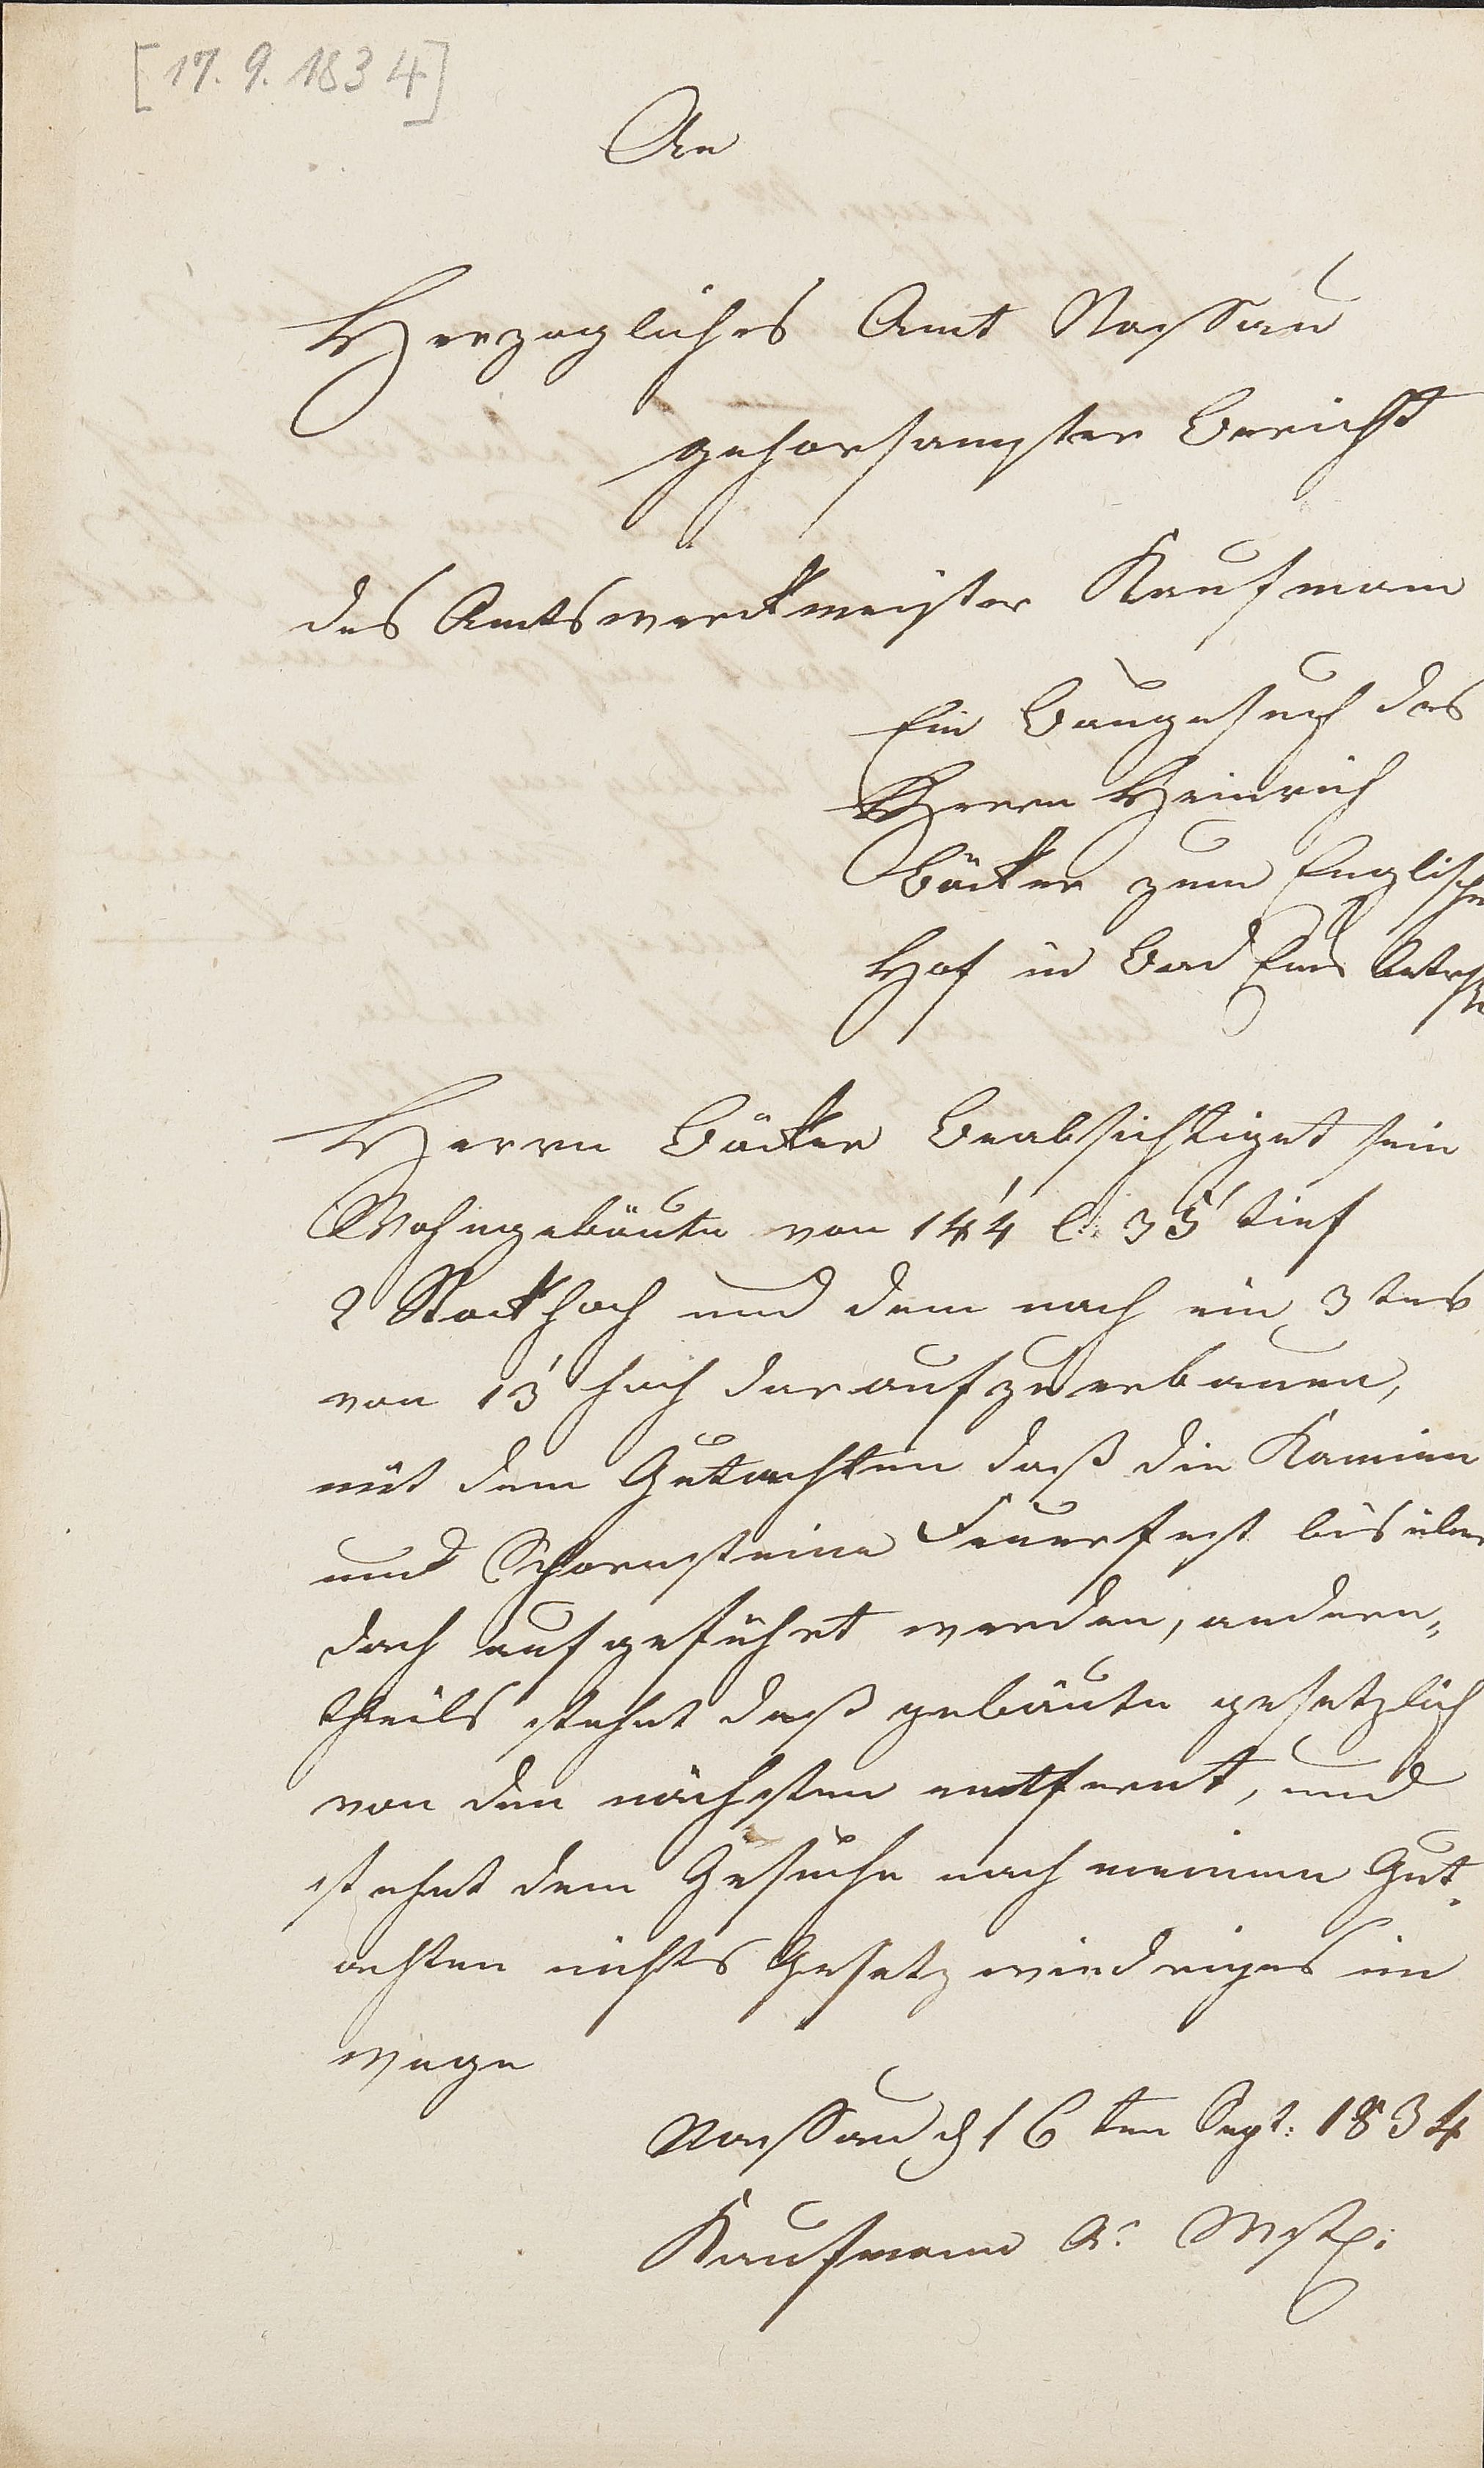 [17. 9. 1834]
An
Herzogliches Amt Nassau
gehorsamster Bericht
des Amtswerckmeister Kaufmann
Ein Baugesuch des
Herrn Heinrich
Bäcker zum Englischen
Hof in Bad Ems
Herrn Bäcker Beabsichtiget sein
Wohngebäute von 144' l: 35' tief
2 Stock hoch und dem noch ein 3ter
von 13' hoch darauf zu erbauen,
mit dem Gutachten daß die Kamine
und Schornsteine Feuerfest bis über
dach aufgeführt werden, andern„
theils stehet daß gebäute gesetzlich
von den nächsten entfernt, und
stehet dem Gesuche nach meinem Gut„
achten nichts Gesetzwiedriges im
wege
Nassau d 16ten Sept: 1834
Kaufmann A: